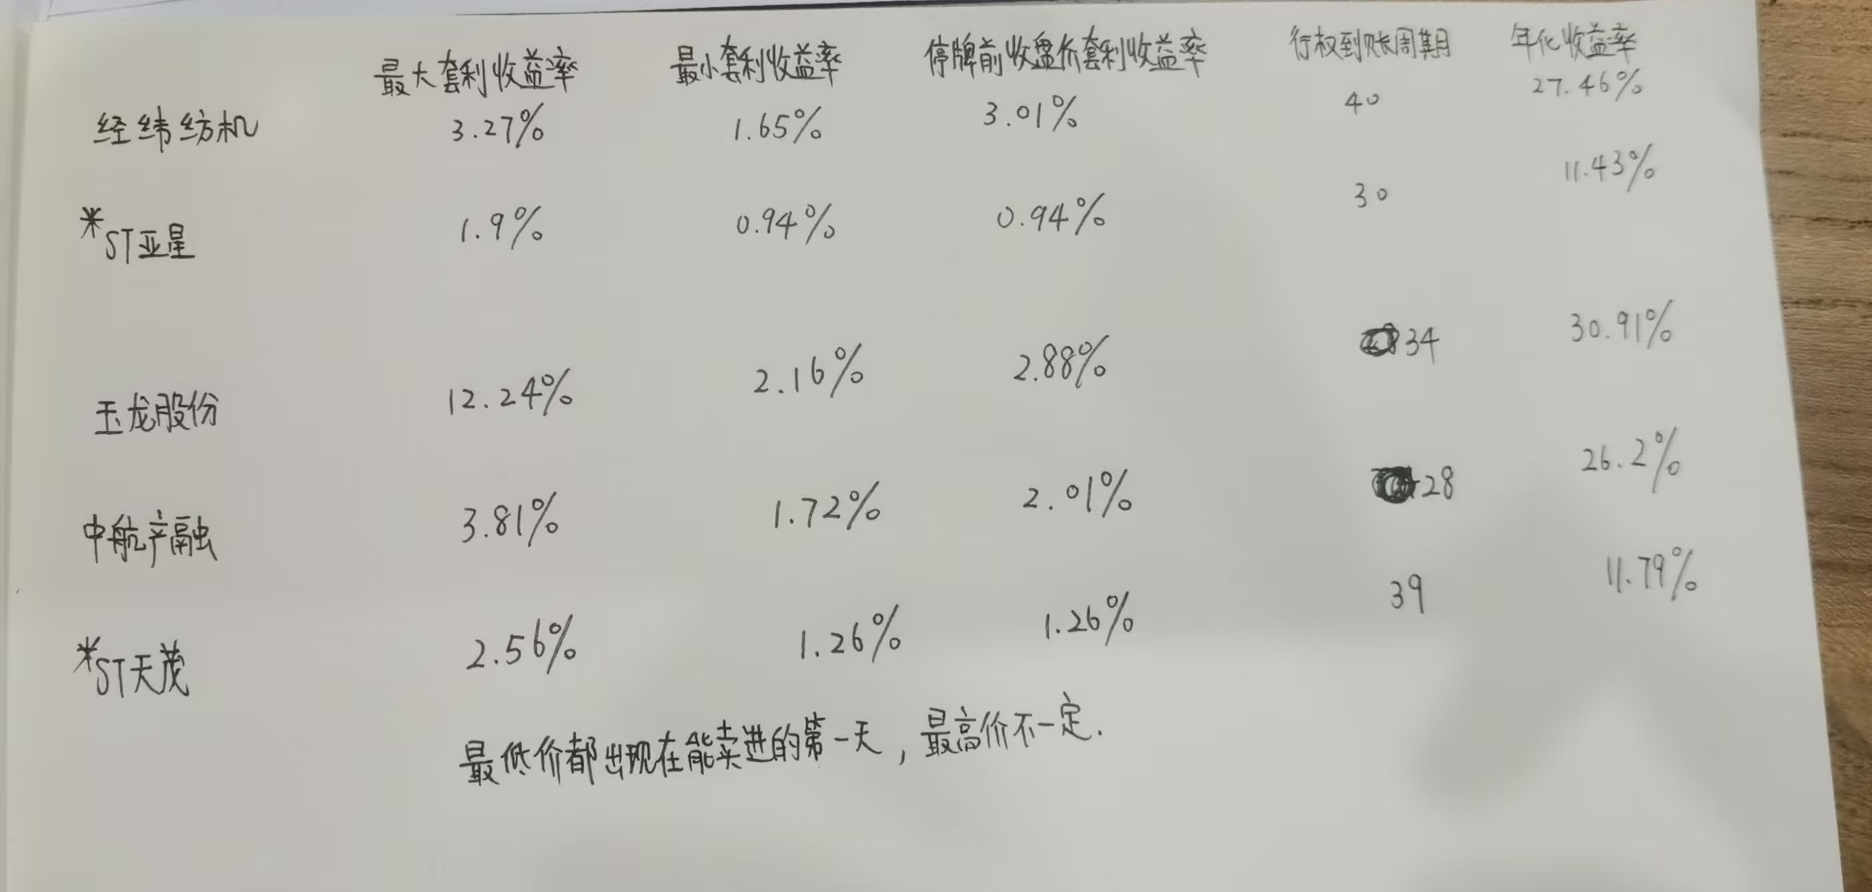 最大套利收益率 最小套利收益率 停牌前收盘价套利收益率 行权到账周期 年化收益率
经纬纺机 3.27% 1.65% 3.01% 40 27.46%
*ST亚星 1.9% 0.94% 0.94% 30 11.43%
玉龙股份 12.24% 2.16% 2.88% 34 30.91%
中航产融 3.81% 1.72% 2.01% 28 26.2%
*ST天茂 2.56% 1.26% 1.26% 39 11.79%
最低价都出现在能卖进的第一天，最高价不一定.